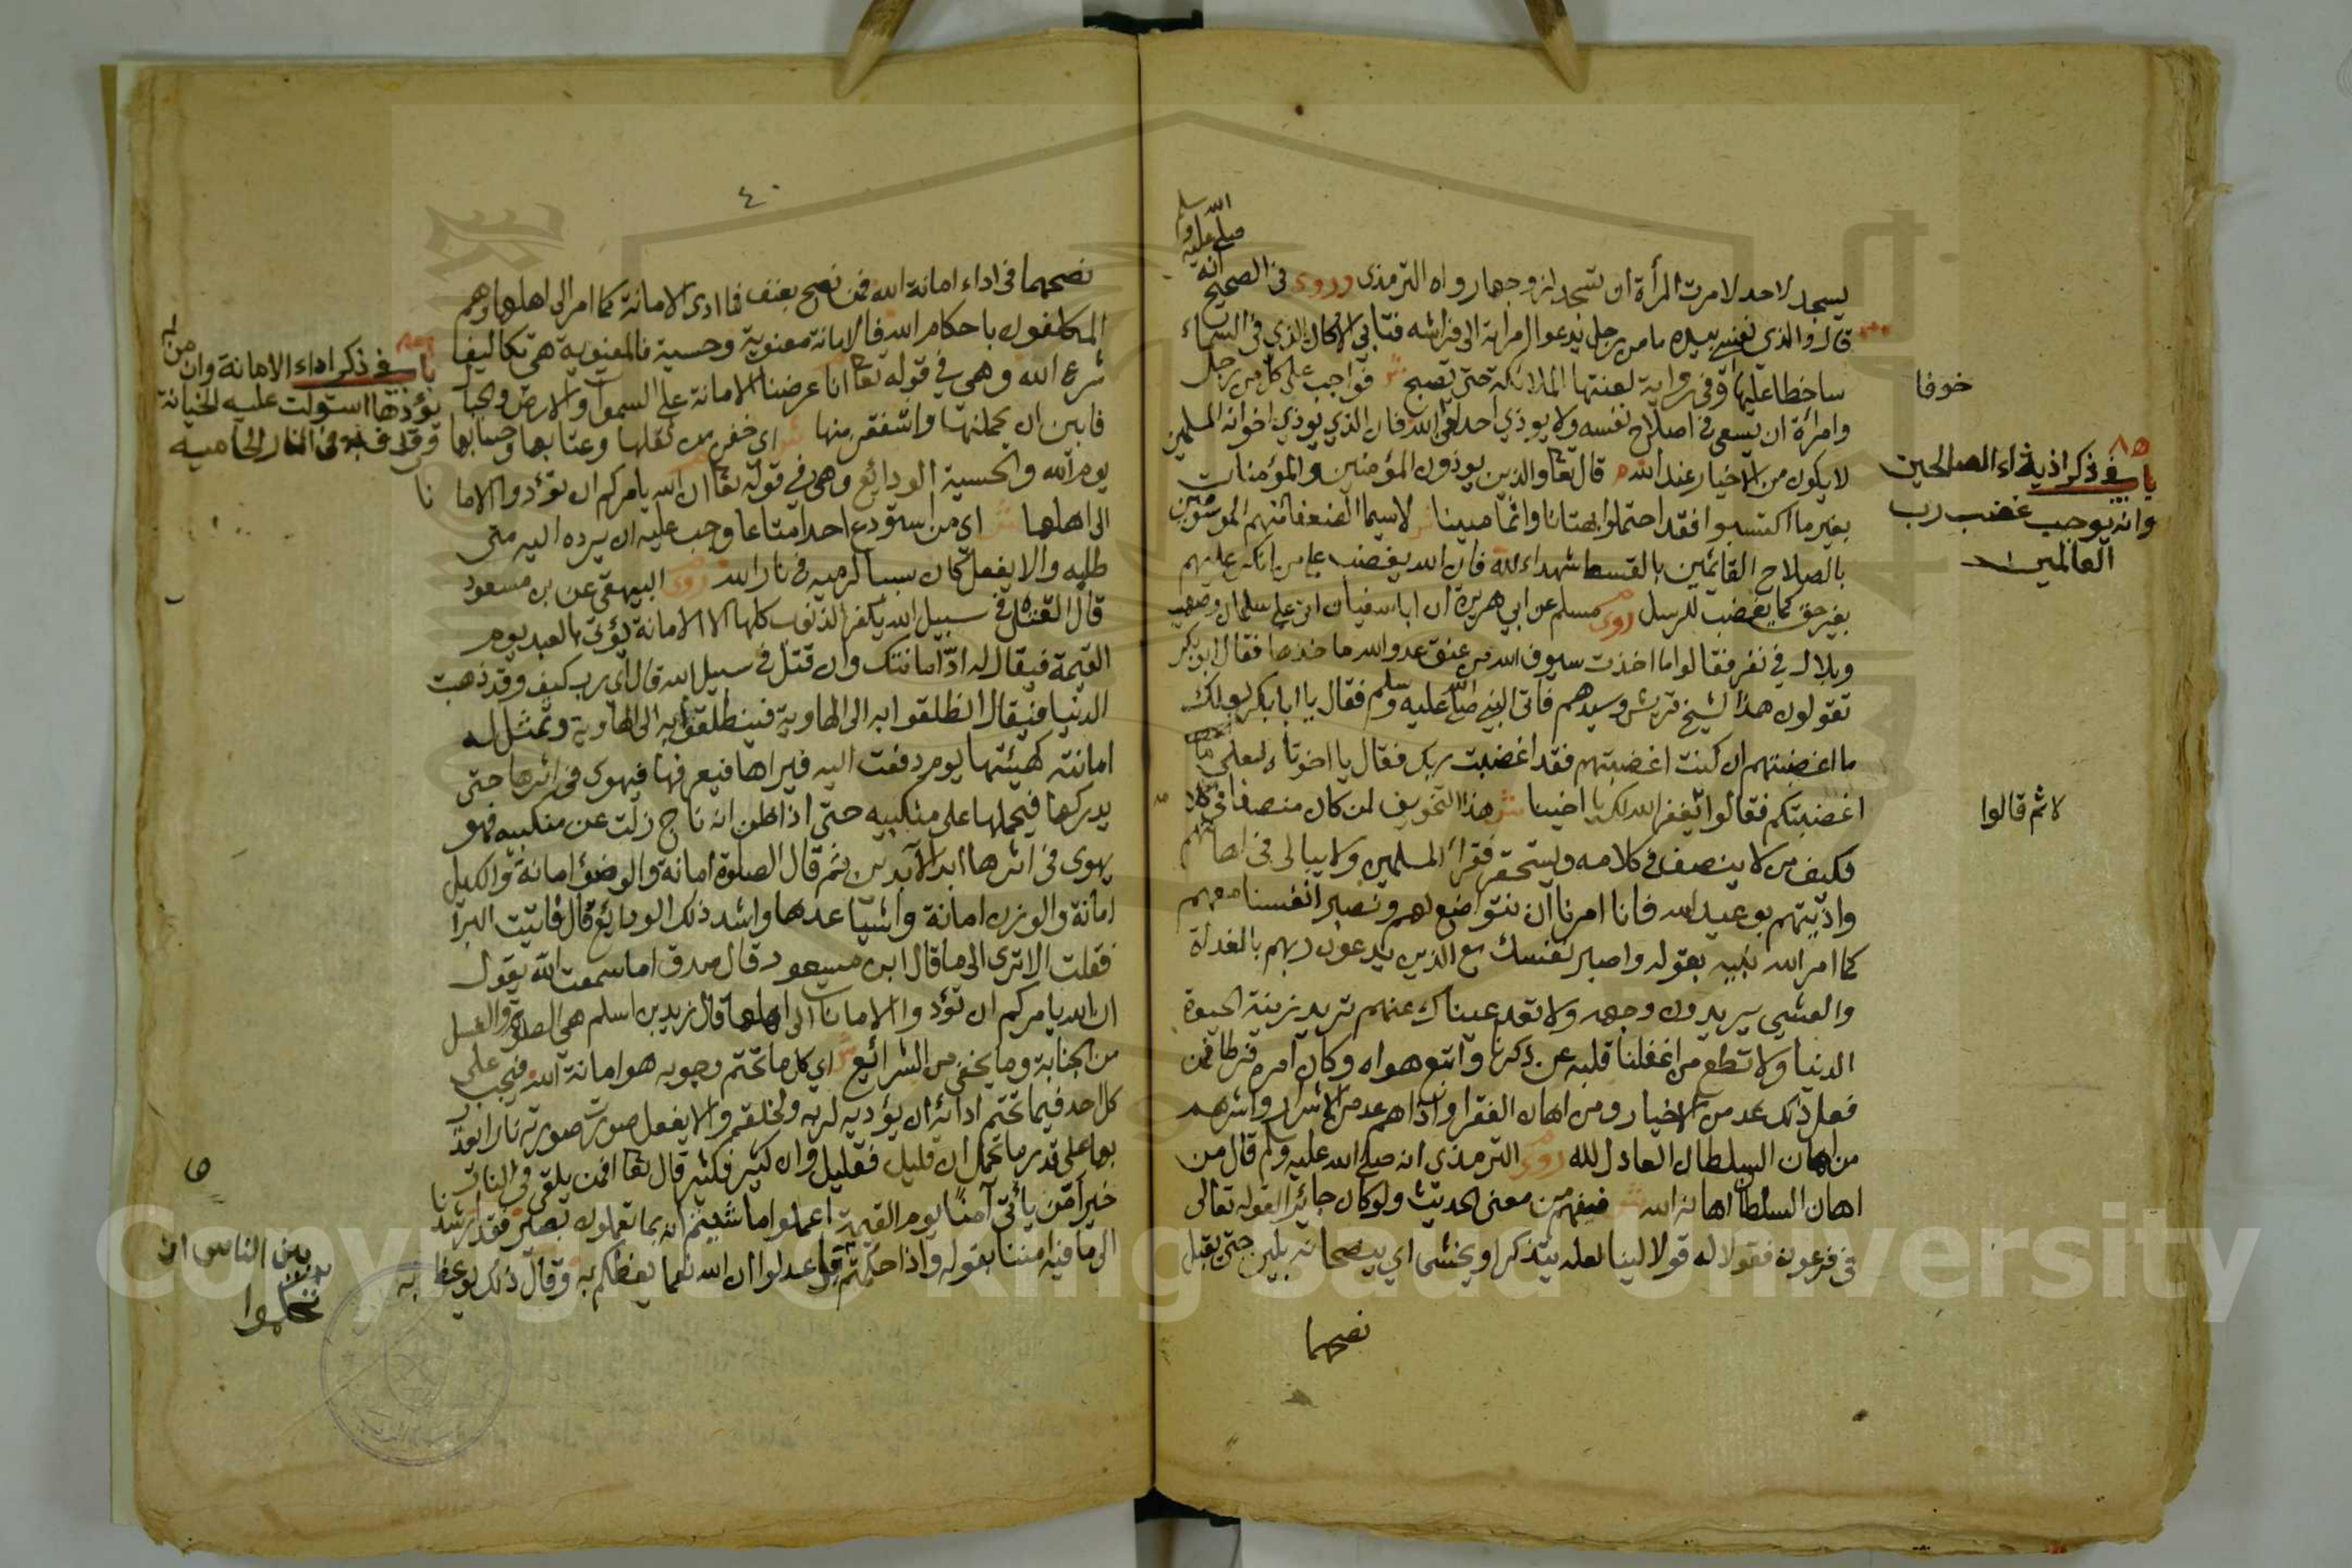 صلى الله عليه وسلم
انه
يسجد لاحد لامرت المرأة ان تسجد لزوجها رواه الترمذى وروى فى الصحيح
قال والذى نفسى بيده ما من رجل يدعوا امراته الى فراشه فتابى الا كان الذي فى السماء
ساخطا عليها وفى رواية لعنتها الملائكة حتى تصبح فواجب على كل من رجل
خوفا
وامرأة ان يسعى فى اصلاح نفسه ولا يوذي احد لله فان الذي يوذي اخوانه المسلمين
لا يكون من الاخيار عند الله قال تعا والذين يوذون المؤمنين والمؤمنات
٨٥
باب فى ذكر اذية الصالحين
وانه يوجب غضب رب
العالمين
بغير ما اكتسبوا فقد احتملوا بهتانا واثما مبينا لاسيما الضعفا منهم
بالصلاح القائمين بالقسط شهداء لله فان الله يغضب على من انكر عليهم
بغير حق كما يغضب للرسل روى مسلم عن ابي هريرة ان ابا سفيان اتى على سلمان وصهيب
وبلال في نفر فقالوا ما اخذت سيوف الله من عنق عدو الله ماخذها فقال ابو بكر
تقولون هذا لشيخ قريش وسيدهم فاتى النبي صلى الله عليه وسلم فقال يا ابا بكر لعلك
ما اغضبتهم ان كنت اغضبتهم فقد اغضبت ربك فقال يا اخوتاه لعلي
اغضبتكم فقالوا لا يغفر الله لك يا اخينا ش هذا التخويف لمن كان منصفا فى كلا
لا ثم قالوا
فكيف من لا ينصف فى كلامه ويستحقر فقراء المسلمين ولا يبالى فى اهانتهم
واذيتهم بوعيد الله فانا امرنا ان نتواضع لهم ونصبر انفسنا معهم
كما امر الله نبيه بقوله واصبر نفسك مع الذين يدعون ربهم بالغداة
والعشي يريدون وجهه ولا تعد عيناك عنهم تريد زينة الحيوة
الدنيا ولا تطع من اغفلنا قلبه عن ذكرنا واتبع هواه وكان امره فرطا فمن
فعل ذلك عد من الاخيار ومن اهان الفقرا واذاهم عد من الاشرار واشرهم
من اهان السلطان العادل لله روى الترمذى انه صلى الله عليه وسلم قال من
اهان السلطان اهانه الله ش فيفهم من معنى الحديث ولو كان جائرا لقوله تعالى
فى فرعون فقولا له قولا لينا لعله يتذكر او يخشى اي ينصحانه بلين حتى يقبل
نصحهما
٤٠
نصحهما فى اداء امانة الله فمن نصح بعنف فما ادى الامانة كما امر الى اهلها وهم
المكلفون باحكام الله فالامانة معنوية وحسية فالمعنوية هى تكاليف
باب فى ذكر اداء الامانة وان من لم
يؤدها استولت عليه الخيانة
وقذفته فى النار الحاميه
شرع الله وهي في قوله تعا انا عرضنا الامانة على السموات والارض والجبال
فابين ان يحملنها واشفقن منها ش اي خفن من ثقلها وعتابها وحسابها
يوم الله والحسية الودائع وهى في قوله تعا ان الله يامركم ان تؤدوا الاما نا
الى اهلها ش اى من استودع احدا متاعا وجب عليه ان يرده اليه متى
طلبه والا يفعل كان سببا لرميه فى نار الله روى البيهقى عن بن مسعود
قال القتل فى سبيل الله يكفر الذنوب كلها الا الامانة يؤتى بالعبد يوم
القيمة فيقال له اد امانتك وان قتل فى سبيل الله قال اي رب كيف وقد ذهبت
الدنيا فيقال انطلقوا به الى الهاوية فينطلقوا به الى الهاوية وتمثل له
امانته كهيئتها يوم دفعت اليه فيراها فيعرفها فيهوى فى اثرها حتى
يدركها فيحملها على منكبيه حتى اذا ظن انه ناج زلت عن منكبيه فهو
يهوى فى اثرها ابد الآبدين ثم قال الصلوة امانة والوضؤ امانة والكيل
امانة والوزن امانة واشيا عدها واشد ذلك الودايع قال فاتيت البرا
فقلت الا ترى الى ما قال ابن مسعود قال صدق اما سمعت الله يقول
ان الله يامركم ان تؤدوا الامانات الى اهلها قال زيد بن اسلم هى الصلوة والغسل
من الجنابة وما يخفى من الشرائع ش اي كل ما تحتم وجوبه هو امانة الله فيجب على
كل احد فيما تحتم ادائه ان يؤديه لربه ولخلقه والا يفعل صورت صورته نارا يعذب
بها على قدر ما تحمل ان قليل فقليل وان كثير فكثير قال تعا افمن يلقى فى النار
خير امن ياتى آمنا يوم القيمة اعملوا ما شئتم انه بما تعملون بصير فقد ارشدنا
الى ما فيه امننا بقوله واذا حكمتم عدلوا ان الله نعما يعظكم به وقال ذلك يوعظ به
بين الناس ان
تحكموا
Copyright © King Saud University